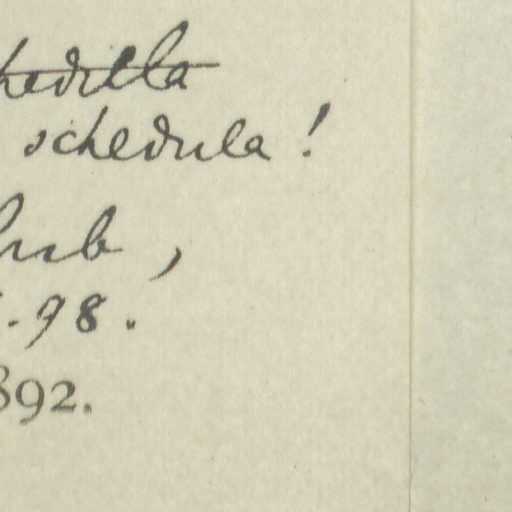 hedilla
schedula!
ub,
.98.
892.